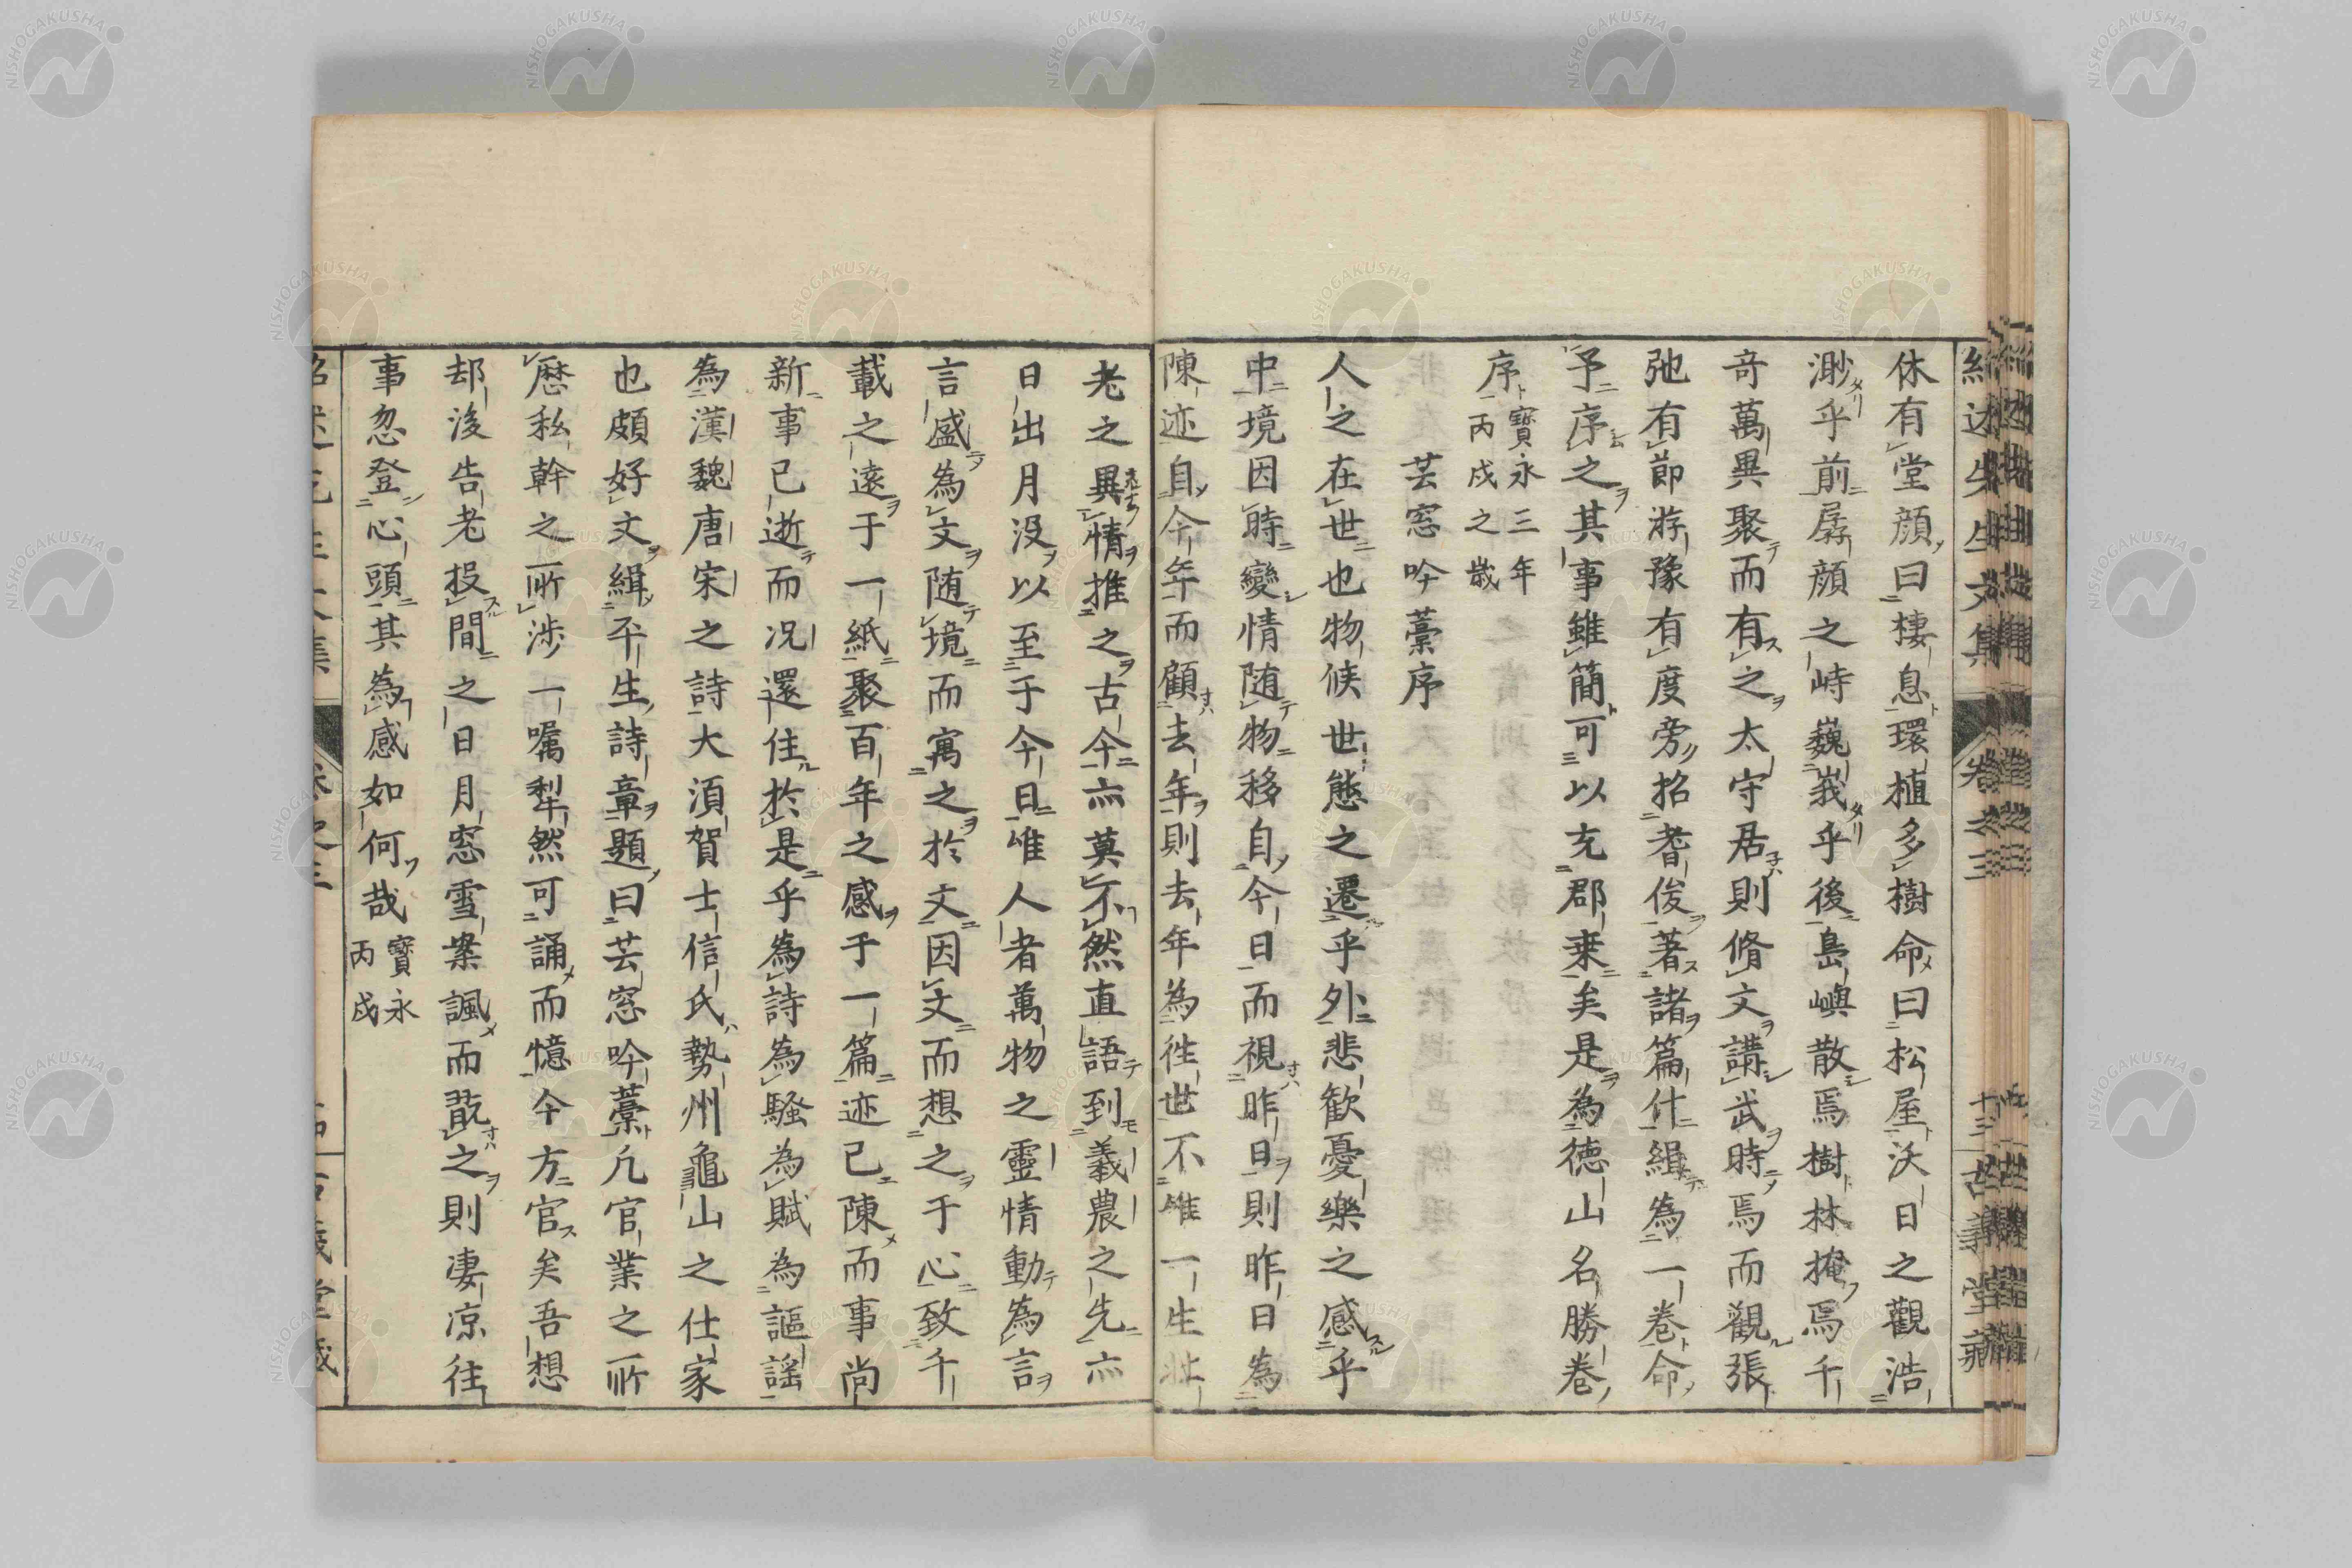 紹述先生文集 卷之三 十三 古義堂藏
休有堂顔曰棲息環植多樹命曰松屋沃日之觀浩
渺乎前孱顔之峙巍峩乎後島嶼散焉樹林掩焉千
竒萬異聚而有之太守居則脩文講武時焉而觀張
弛有節游豫有度旁招耆俊著諸篇什緝為一卷命
予序之其事雖簡可以充郡乗矣是為徳山名勝卷
序 寳永三年丙戌之歳
芸窓吟藁序
人之在世也物候世態之遷乎外悲歓憂樂之感乎
中境因時變情随物移自今日而視昨日則昨日為
陳迹自今年而顧去年則去年為徃世不唯一生壯
老之異情推之古今亦莫不然直語到羲農之先亦
日出月没以至于今日唯人者萬物之靈情動為言
言盛為文随境而寓之於文因文而想之于心致千
載之遠于一紙聚百年之感于一篇迹已陳而事尚
新事已逝而况還住於是乎為詩為騷為賦為謳謡
為漢魏唐宋之詩大湏賀士信氏勢州龜山之仕家
也頗好文緝平生詩章題曰芸窓吟藁凢官業之所
歴私幹之所渉一嘱犁然可誦而憶今方官矣吾想
却後告老投間之日月窓雪案諷而翫之則凄凉往
事忽登心頭其為感如何哉 寳永丙戌